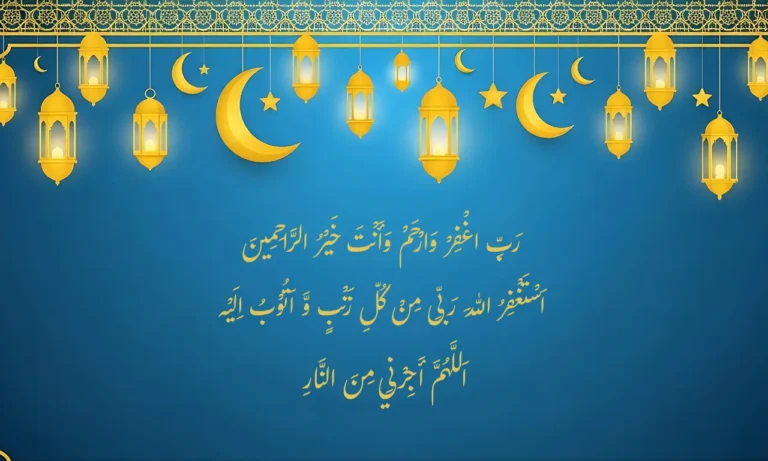 رَبِّ اغْفِرْ وَارْحَمْ وَأَنْتَ خَيْرُ الرَّاحِمِينَ
اَسْتَغْفِرُ اللهَ رَبِّی مِنْ كُلِّ ذَنْبٍ وَّ اَتُوْبُ اِلَيْهِ
اَللَّهُمَّ أَجِرْنِي مِنَ النَّارِ